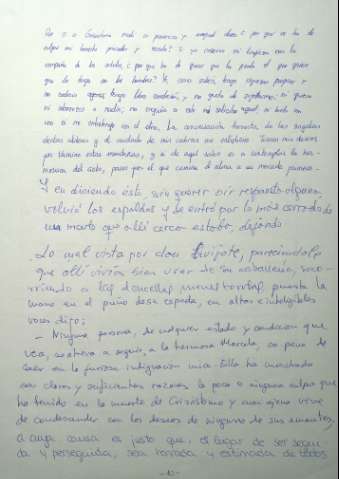 Que si a Grisóstomo mató su impaciencia y arrojado deseo, ¿por qué se ha de
culpar mi honesto proceder y recato? Si yo conservo mi limpieza con la
compañía de los árboles, ¿por qué ha de querer que la pierda el que quiere
que la tenga con los hombres? Yo, como sabéis, tengo riquezas propias y
no codicio ajenas; tengo libre condición, y no gusto de sujetarme; ni quiero
ni aborrezco a nadie; no engaño a este ni solicito aquel; ni burlo con
uno ni me entretengo con el otro. La conversación honesta de las zagalas
destas aldeas y el cuidado de mis cabras me entretiene. Tienen mis deseos
por término estas montañas, y si de aquí salen es a contemplar la her-
mosura del cielo, pasos con que camina el alma a su morada primera.
Y en diciendo ésto, sin querer oir respuesta alguna
volvió las espaldas y se entró por lo más cerrado de
un monte que allí cerca estaba, dejando
Lo cual visto por don Quijote, pareciéndole
que allí venía bien usar de su caballería, soco-
rriendo a las doncellas menesterosas, puesta la
mano en el puño de su espada, en altas e inteligibles
voces dijo:
— Ninguna persona, de cualquier estado y condición que
sea, se atreva a seguir a la hermosa Marcela, so pena de
caer en la furiosa indignación mía. Ella ha mostrado
con claras y suficientes razones la poca o ninguna culpa que
ha tenido en la muerte de Grisóstomo y cuan ajena vive
de condescender con los deseos de ninguno de sus amantes,
a cuya causa es justo que, en lugar de ser segui-
da y perseguida, sea honrada y estimada de todos